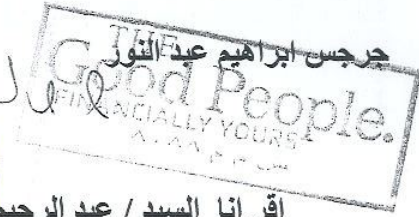 جرجس ابراهيم عبد النور
THE
Good People.
FINANCIALLY YOURS
س.ت ٨٠٨٨
اقر انا السيد / عبد الرحيم